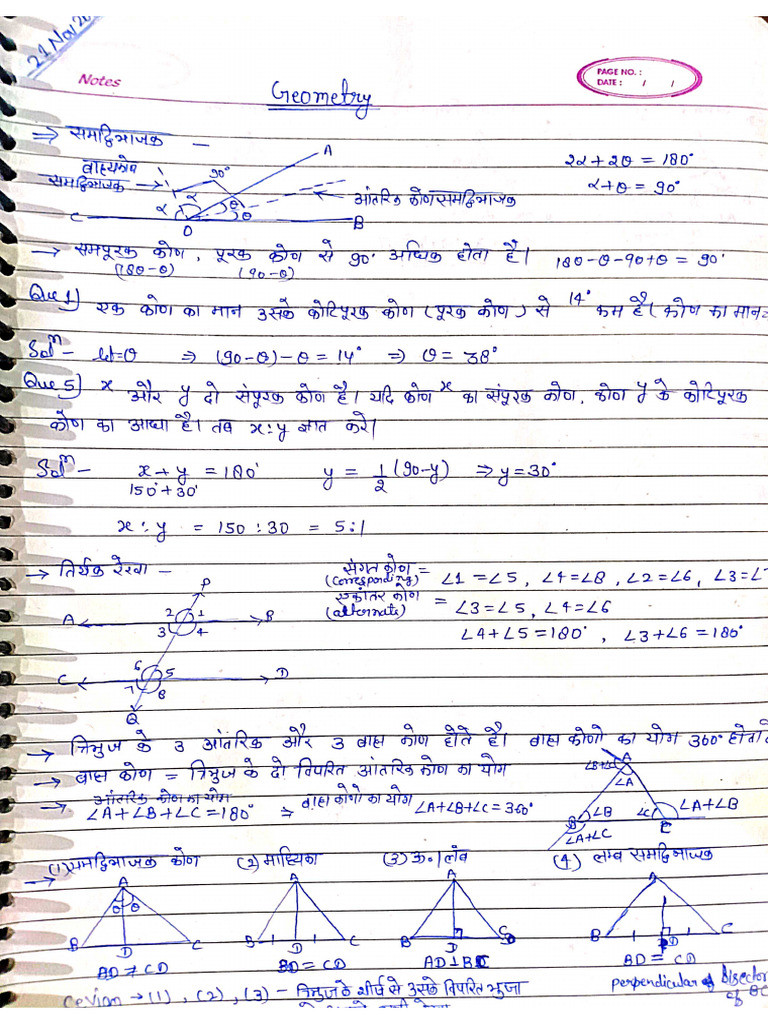 21 Nov 20
Notes
PAGE NO. :
DATE : / /
Geometry
⇒ समद्विभाजक –
A
2α + 2θ = 180°
α + θ = 90°
90°
समद्विभाजक →
α α θ θ
आंतरिक कोण समद्विभाजक
C O B
→ समपूरक कोण, पूरक कोण से 90° अधिक होता है। 180-θ-90+θ = 90°
(180-θ) (90-θ)
Que 1) एक कोण का मान उसके कोटिपूरक कोण (पूरक कोण) से 14° कम है। कोण का मान=
Solⁿ - let=θ ⇒ (90-θ)-θ = 14° ⇒ θ = 38°
Que 5) x और y दो संपूरक कोण है। यदि कोण x का संपूरक कोण, कोण y के कोटिपूरक
कोण का आधा है। तब x:y ज्ञात करे।
Solⁿ - x + y = 180° y = 1/2 (90-y) ⇒ y=30°
150°+30°
x : y = 150 : 30 = 5:1
→ तिर्यक रेखा –
संगत कोण =
(corresponding) ∠1 = ∠5, ∠4=∠8, ∠2=∠6, ∠3=∠7
एकांतर कोण =
(alternate) ∠3=∠5, ∠4=∠6
∠4+∠5=180°, ∠3+∠6=180°
P
A 2 1 B
3 4
C 6 5 D
7 8
Q
→ त्रिभुज के 3 आंतरिक और 3 बाह्य कोण होते है। बाह्य कोणो का योग 360° होता है
→ बाह्य कोण = त्रिभुज के दो विपरित आंतरिक कोण का योग
→ आंतरिक कोण का योग ⇒ बाह्य कोणो का योग
∠A+∠B+∠C=180° ∠A+∠B+∠C=360°
∠B+∠C A
∠A
B ∠B ∠C C ∠A+∠B
∠A+∠C
→ (1) समद्विभाजक कोण (2) माध्यिका (3) ऊ०/लंब (4) लम्ब समद्विभाजक
A A A A
θ θ
B D C B D C B D C B D C
BD ≠ CD BD = CD AD⊥BC BD = CD
Cevian → (1), (2), (3) – त्रिभुज के शीर्ष से उसके विपरित भुजा
perpendicular Bisector
of BC